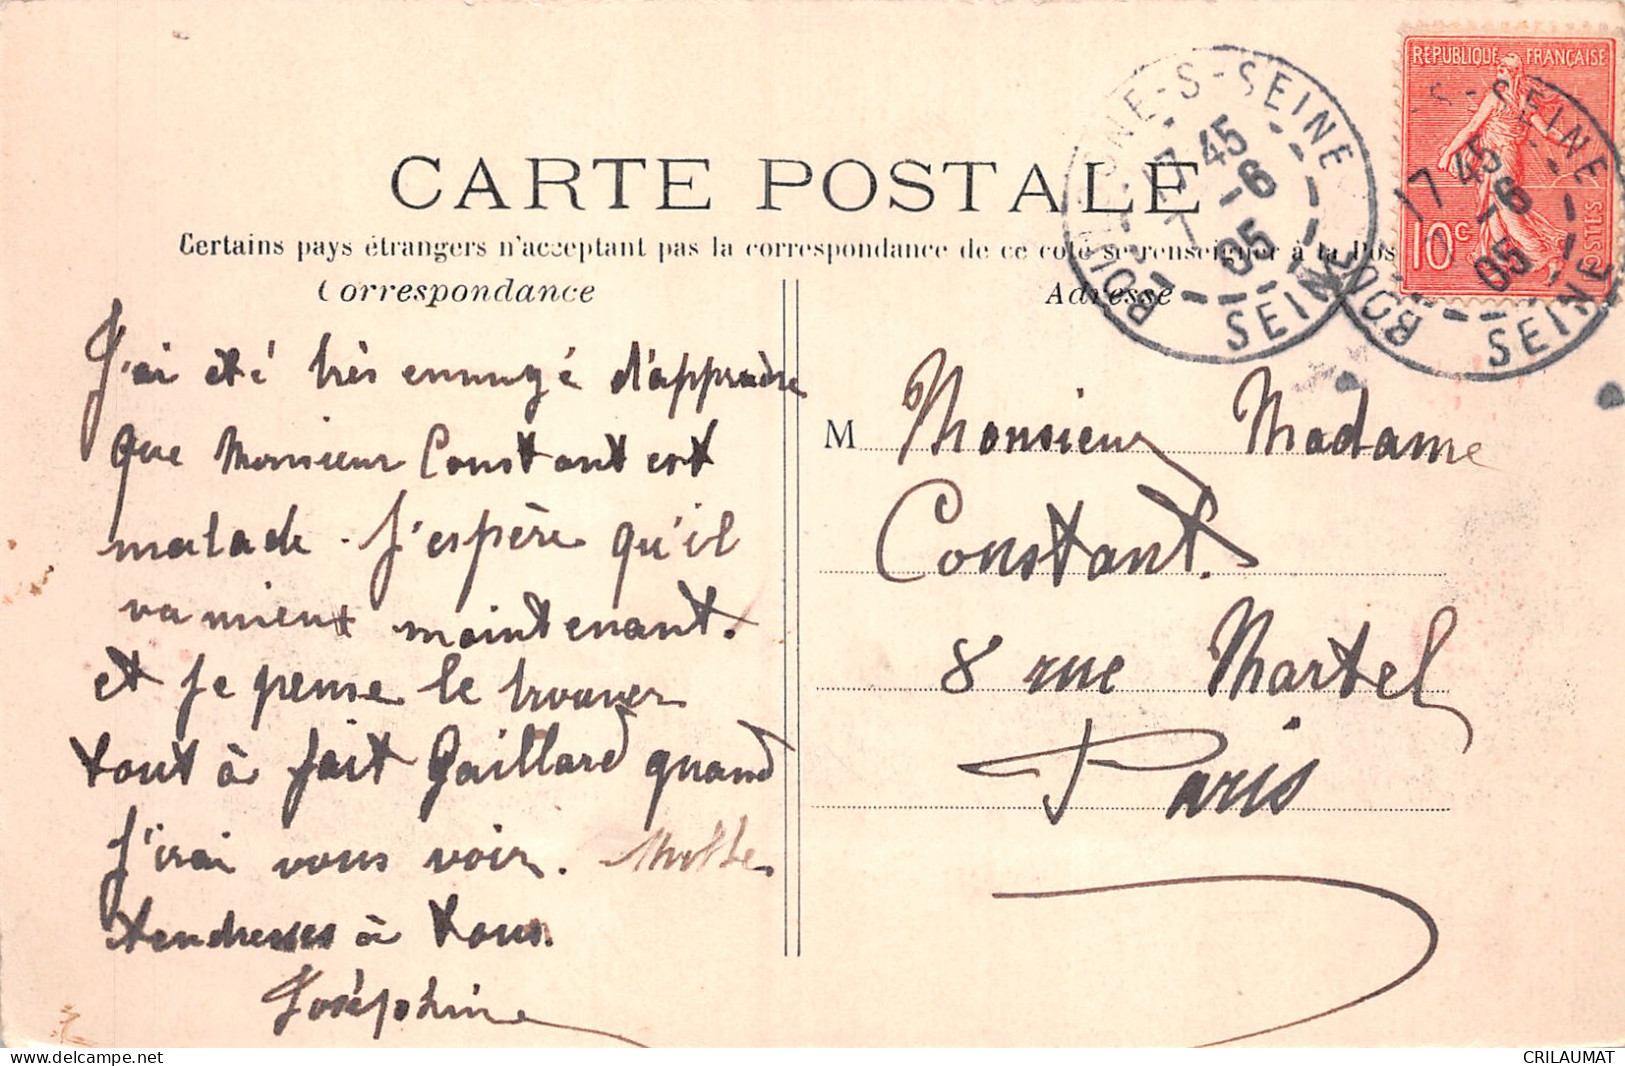 CARTE POSTALE
Certains pays étrangers n'acceptant pas la correspondance de ce coté se renseigner à la Pos
Correspondance
J'ai été très ennuyé d'apprendre
que Monsieur Constant est
malade. J'espère qu'il
va mieux maintenant.
et je pense le trouver
tout à fait Gaillard quand
J'irai vous voir. Mille
tendresses à tous.
Joséphine
Adresse
M Monsieur Madame
Constant.
8 rue Martel
Paris
RÉPUBLIQUE FRANÇAISE
10c
POSTES
S-SEINE
17 45
7-6
05
SEINE
S-SEINE
17 45
-6
05
SEINE
CRILAUMAT